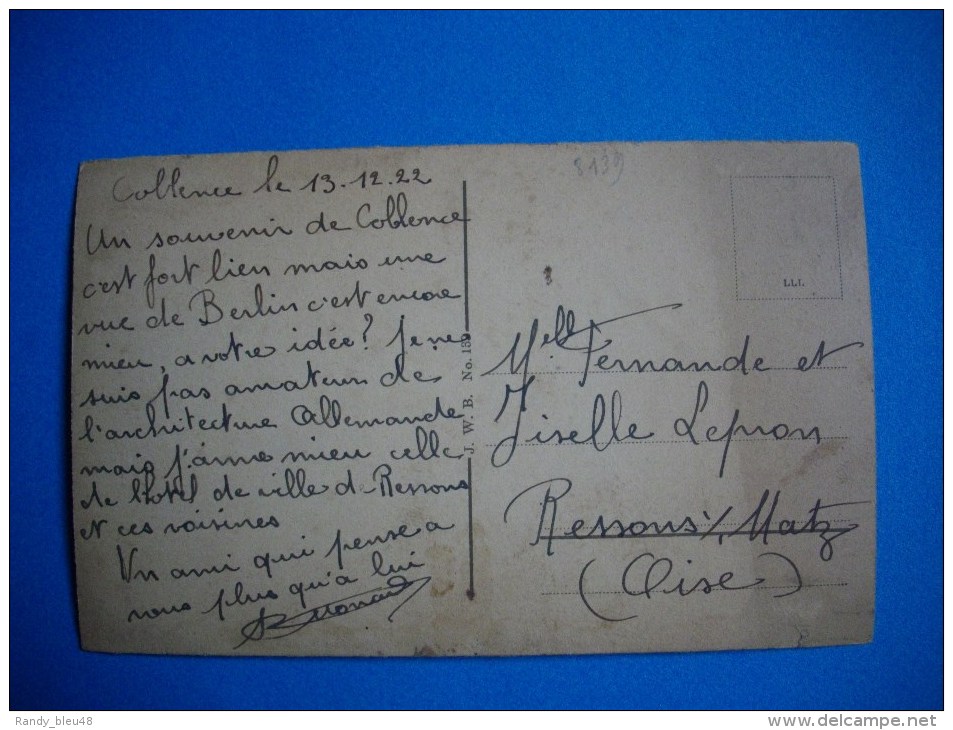 Coblence le 13.12.22
Un souvenir de Coblence
c'est fort bien mais une
vue de Berlin c'est encore
mieu, a votre idée? Je ne
suis pas amateur de
l'architecture Allemande
mais j'aime mieu celle
de l'hotel de ville de Ressons
et ces voisines
Un ami qui pense a
vous plus qu'a lui
8139
LLL
J. W. B. No. 13
Melle Fernande et
Giselle Lepron
Ressons s/ Matz
(Oise)
Randy_bleu48
www.delcampe.net